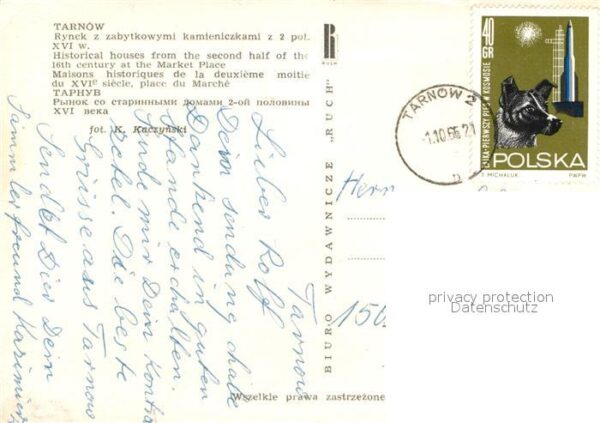 TARNÓW
Rynek z zabytkowymi kamieniczkami z 2 poł.
XVI w.
Historical houses from the second half of the
16th century at the Market Place
Maisons historiques de la deuxième moitie
du XVIe siècle, place du Marché
ТАРНУВ
Рынок со старинными домами 2-ой половины
XVI века
fot. K. Kaczyński
R
RUCH
BIURO WYDAWNICZE „RUCH”
Wszelkie prawa zastrzeżone
40
GR
ŁAJKA-PIERWSZY PIES W KOSMOSIE
POLSKA
T. MICHALUK
PWPW
TARNÓW 2
-1.10.66.21
Herrn
150
privacy protection
Datenschutz
Tarnow
Lieber Rolf
Dein sendung habe
Dankend in guten
Stande erhalten.
Sende mir Dein Kontra
Zetel. Die beste
Grüsse aus Tarnow
Sendet Dier Dein
Simmlerfreund Kazimierz